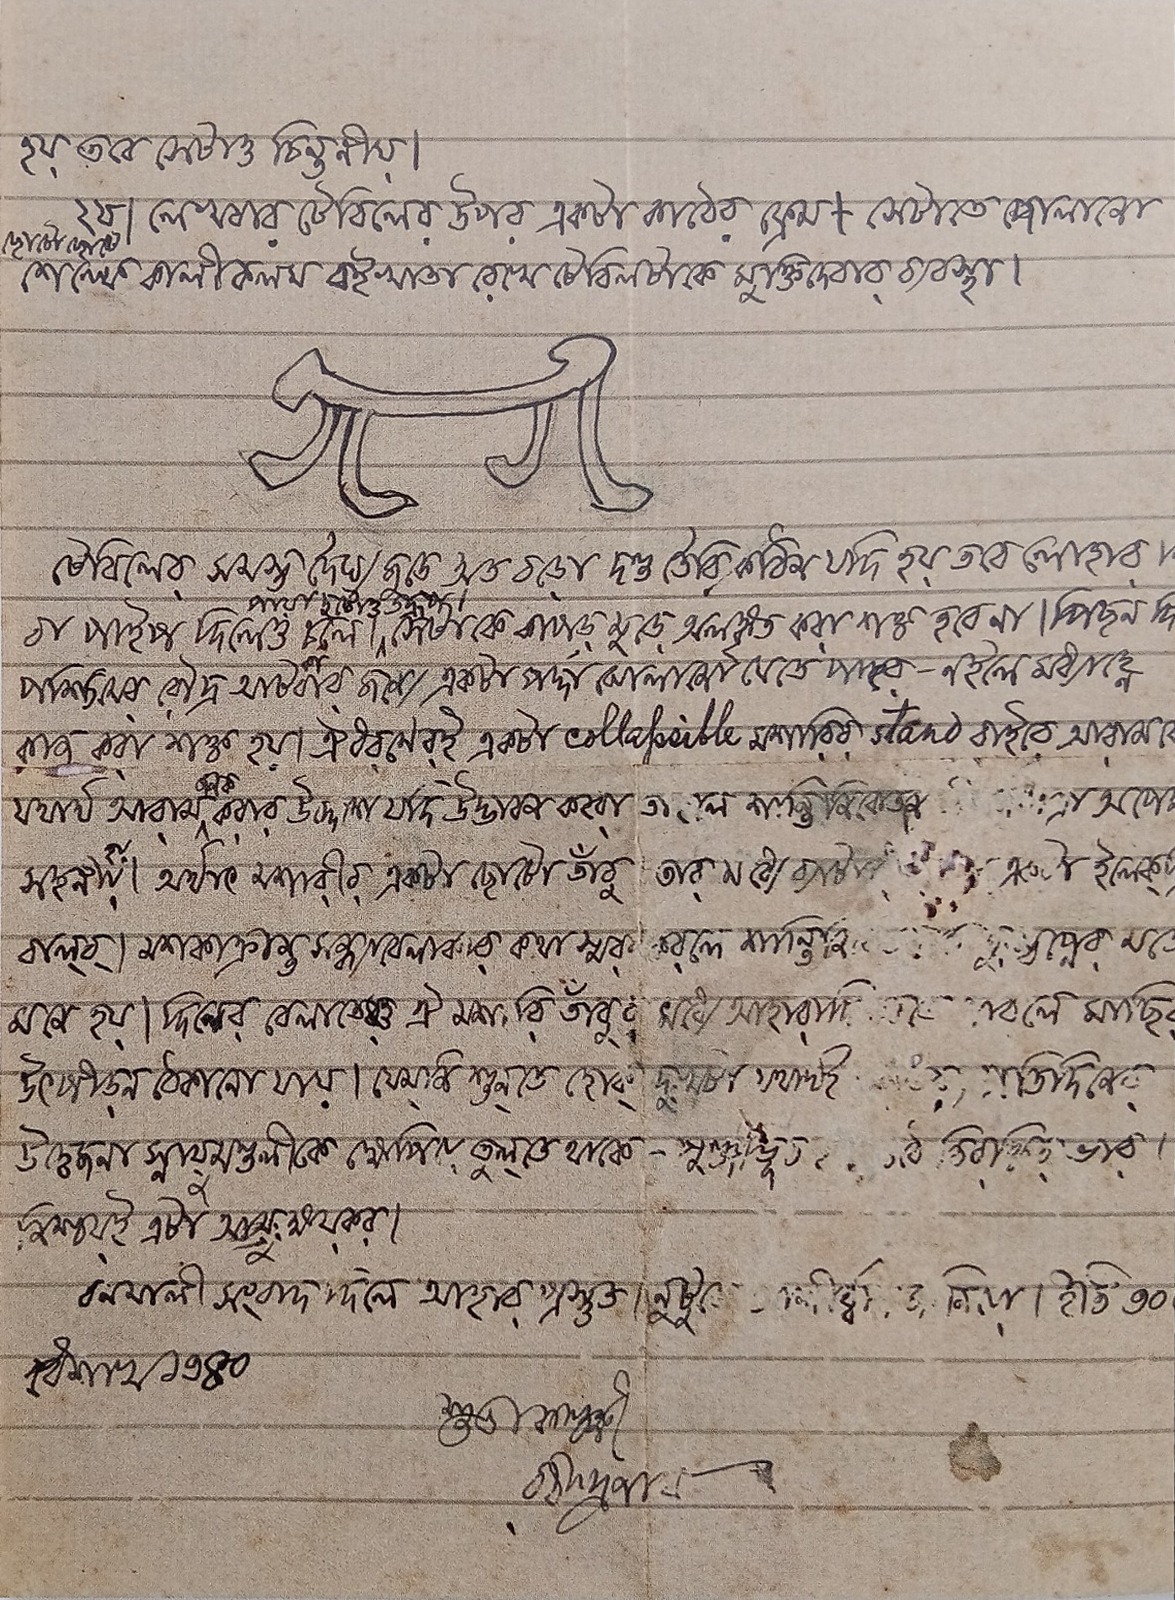 হয় তবে সেটাও চিন্তনীয়।
২য়। লেখবার টেবিলের উপর একটা কাঠের ফ্রেম সেটাতে ঝোলানো
ছোটো ছোটো
শেল্‌ফে কালীকলম বই খাতা রেখে টেবিলটাকে মুক্তি দেবার ব্যবস্থা।
টেবিলের সমস্ত দৈর্ঘ্য জুড়ে অত বড়ো দণ্ড তৈরি কঠিন যদি হয় তবে লোহার
পায়া দুটোও তদ্রূপ।
বা পাইপ দিলেও চলে। সেটাকে কাপড় মুড়ে অলঙ্কৃত করা শক্ত হবে না। পিছন দি
পশ্চিমের রৌদ্র আটকাবার জন্যে একটা পর্দ্দা ঝোলানো যেতে পারে – নইলে মধ্যাহ্নে
কাজ করা শক্ত হয়। ঐ ধরণেরই একটা collapsible মশারির stand বাইরে আরাম
যথার্থ আরামজনক করবার উদ্দেশে যদি উদ্ভাবন করো তাহলে শান্তিনিকেতন
সহনীয় হয়। অর্থাৎ মশারীর একটা ছোটো তাঁবু তার মধ্যে একটা ইলেক্‌
বাল্‌ব্‌। মশকাক্রান্ত সন্ধ্যাবেলাকার কথা স্মরণ করলে দুঃস্বপ্নের মতো
মনে হয়। দিনের বেলাতেও ঐ মশারি তাঁবুর মধ্যে আহারাদি মাছির
উৎপীড়ন ঠেকানো যায়। যেমনি শুনতে হোক্‌ দুঃখটা যথার্থই প্রতিদিনের
উত্তেজনা স্নায়ুমণ্ডলীকে ক্ষেপিয়ে তুল্‌তে থাকে – পুঞ্জীভূত ভার।
নিশ্চয়ই এটা আয়ুক্ষয়কর।
বনমালী সংবাদ দিলে আহার প্রস্তুত। নুটুকে নিয়ো। ইতি ৩০
বৈশাখ ১৩৪০
শুভাকাঙ্ক্ষী
রবীন্দ্রনাথ